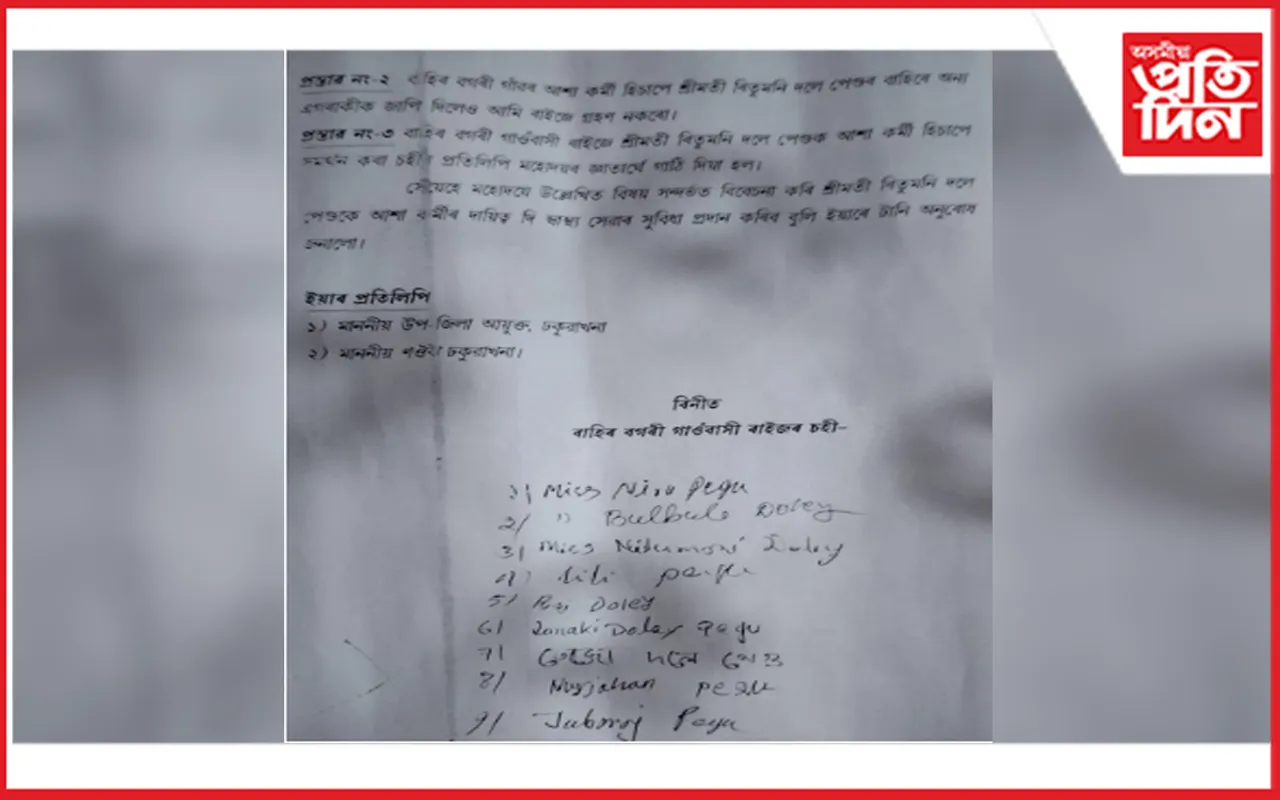 অসমীয়া
প্ৰতি
দিন
প্ৰস্তাৱ নং-২ বাহিৰ বগৰী গাঁৱৰ আশা কৰ্মী হিচাপে শ্ৰীমতী ৰিতুমনি দলে পেগুৰ বাহিৰে অন্য
এগৰাকীক জাপি দিলেও আমি ৰাইজে গ্ৰহণ নকৰো।
প্ৰস্তাৱ নং-৩ বাহিৰ বগৰী গাওঁবাসী ৰাইজে শ্ৰীমতী ৰিতুমনি দলে পেগুক আশা কৰ্মী হিচাপে
সমৰ্থন কৰা চহীৰ প্ৰতিলিপি মহোদয়ৰ জ্ঞাতাৰ্থে গাঠি দিয়া হল।
সেয়েহে মহোদয়ে উল্লেখিত বিষয় সন্দৰ্ভত বিবেচনা কৰি শ্ৰীমতী ৰিতুমনি দলে
পেগুকে আশা কৰ্মীৰ দায়িত্ব দি স্বাস্থ্য সেৱাৰ সুবিধা প্ৰদান কৰিব বুলি ইয়াৰে টানি অনুৰোধ
জনালো।
ইয়াৰ প্ৰতিলিপি
১) মাননীয় উপ-জিলা আয়ুক্ত, ঢকুৱাখনা
২) মাননীয় ঢকুৱাখনা।
বিনীত
বাহিৰ বগৰী গাওঁবাসী ৰাইজৰ চহী-
১| Mics Niru Pegu
2/ " Bulbuli Doley
3) Mics Doley
4) Lili pegu
5/ Doley
6) Doley Pegu
7) দলে পেগু
8/ Nurjahan pegu
9/ Pegu